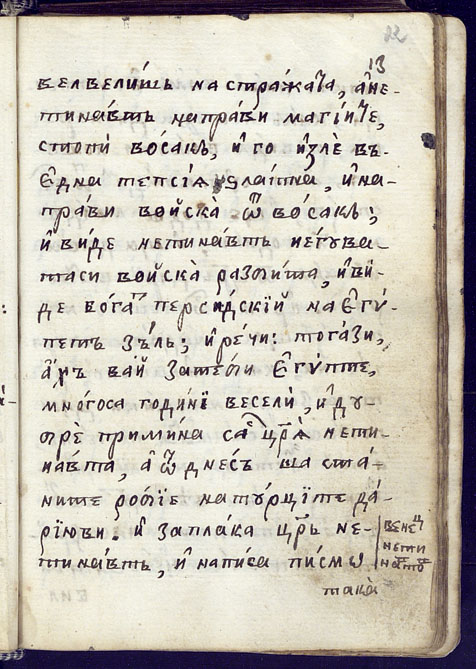 12
13
велвели́шъ на стра́жата, а҆не-
тина́въ напра́ви маги́ите,
стопи́ во́сакъ, и҆го и҆злѐ въ-
е҆дна тепсі́ꙗ ѕла́тна, и҆на-
пра́ви войска̀ ѿ во́сакъ;
и҆ви́де нетина́въ него́ва-
таси войска̀ разбита, и҆ви́-
де бога̀ персі́дскїй на е҆гѵ́-
петъ зъ́лъ; и҆ре́чи: тога́зи,
а҆хъ ва́й затебѝ е҆гѵ́пте,
мно́госа годи́нї весели̇̀, и҆ду-
брѐ примина са҆ цр҃ѧ̀ нети-
на́ва, а҆ѿ дне́съ ща ста́-
ните робїе на ту́рците да́-
рїюви. и҆ запла́ка цр҃ь не-
тина́въ, и҆написа писмѡ
така̀